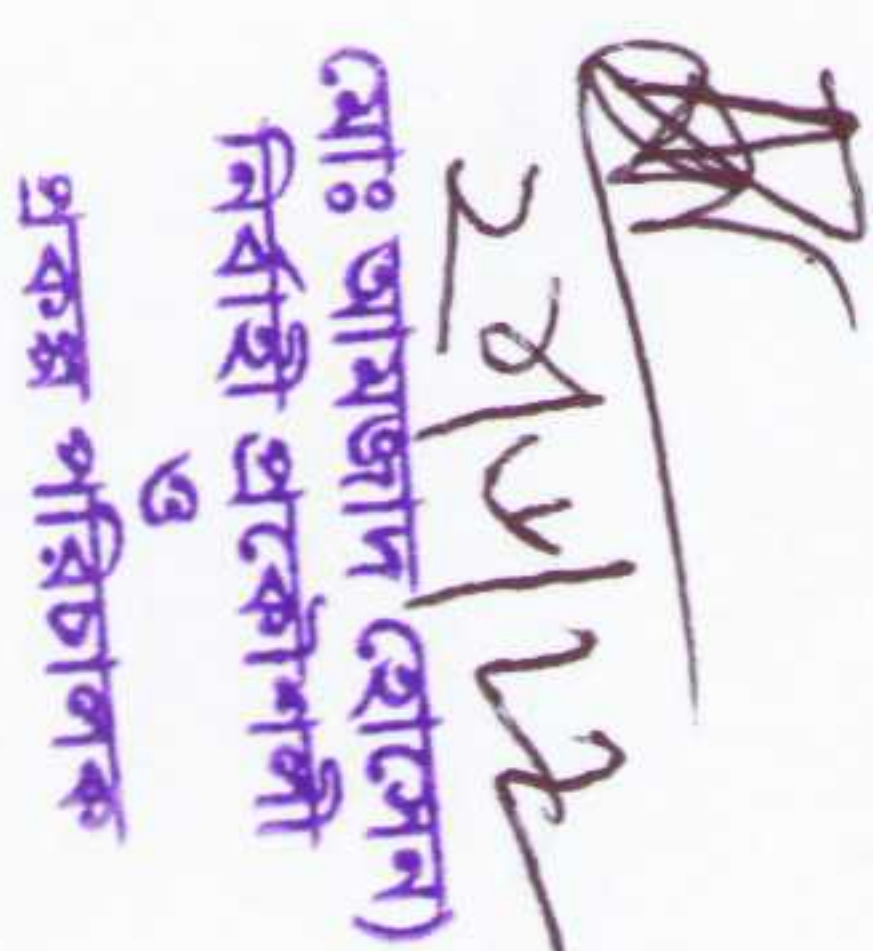 মোঃ আমজাদ হোসেন)
নির্বাহী প্রকৌশলী
ও
প্রকল্প পরিচালক